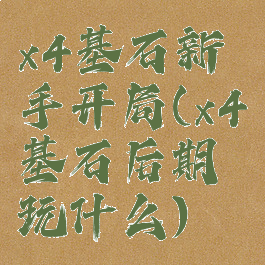 x4基石新
手开局(x4
基石后期
玩什么)